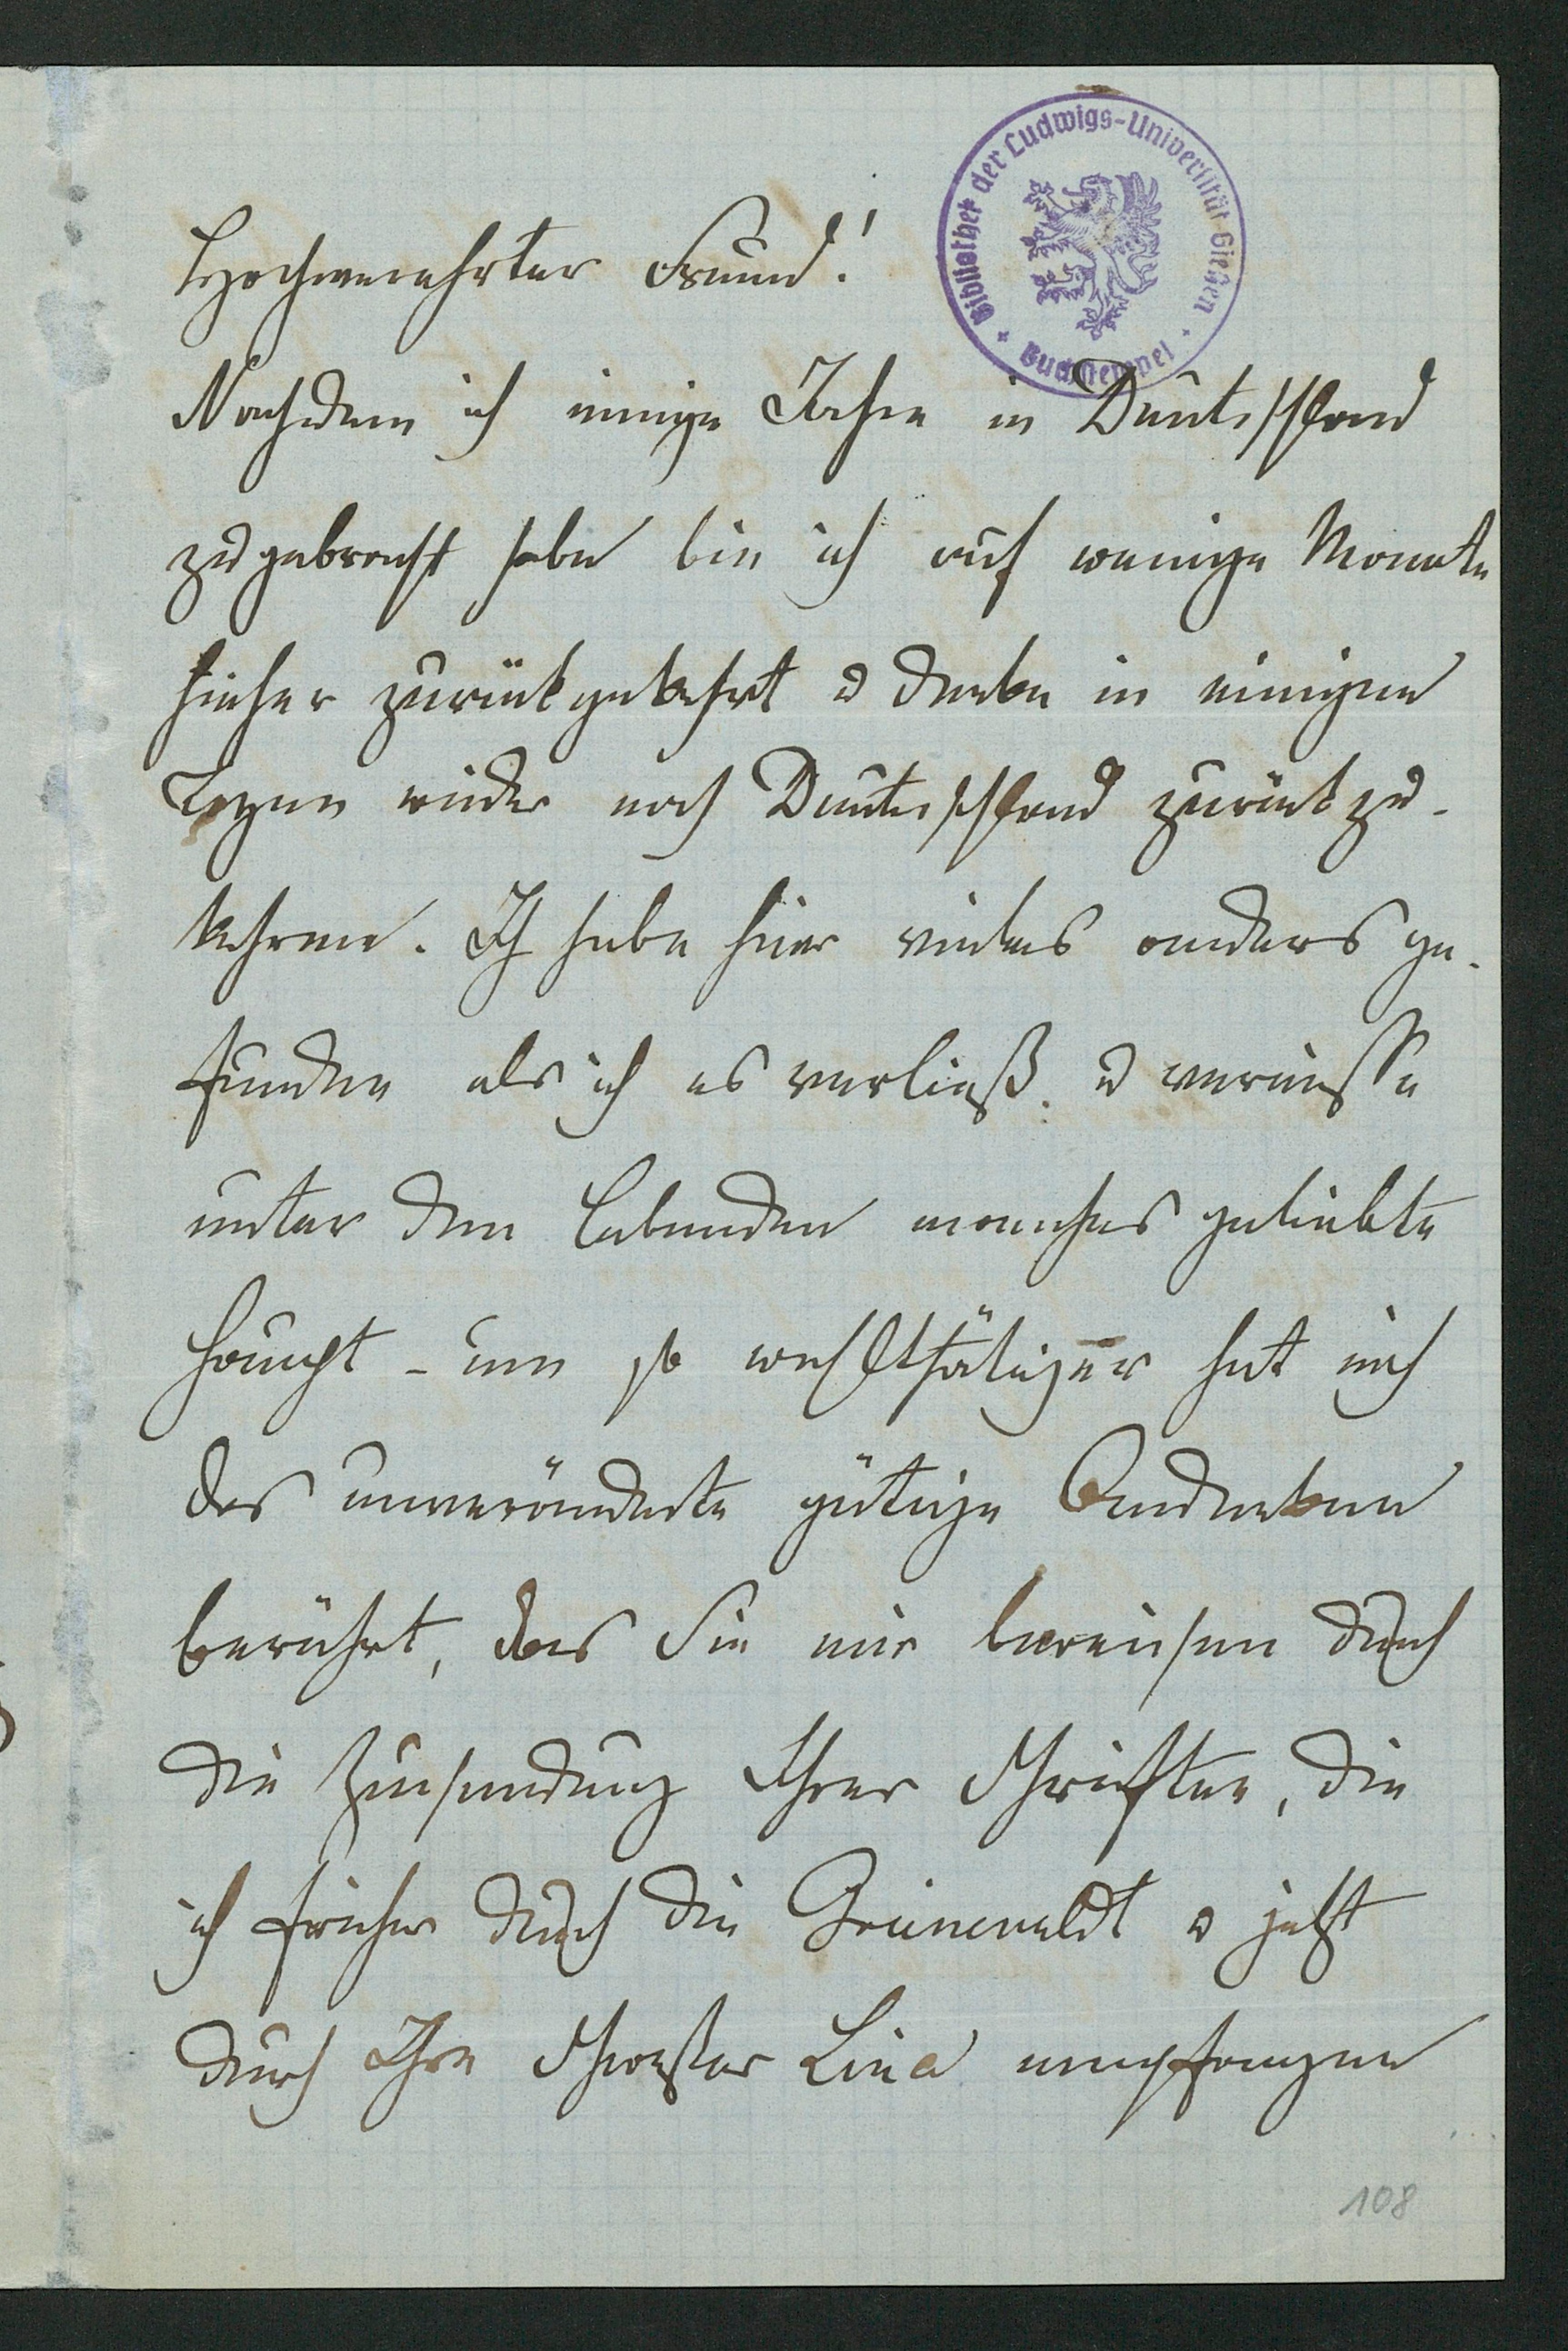 Bibliothek der Ludwigs-Universität Gießen
Buchstempel
Hochverehrter Freund!
Nachdem ich einige Jahre in Deutschland
zugebracht habe bin ich auf wenige Monate
hieher zurückgekehrt u denke in einigen
Tagen wieder nach Deutschland zurückzu-
kehren. Ich habe hier vieles anders ge-
funden als ich es verließ. u vermisse
unter den Lebenden manches geliebte
Haupt - um so wohlthätiger hat mich
das unveränderte gütige Andenken
berührt, das Sie mir beweisen durch
die Zusendung Ihrer Schriften, die
ich früher durch die Grünewaldt u jetzt
durch Ihre Schwester Lina empfangen
108